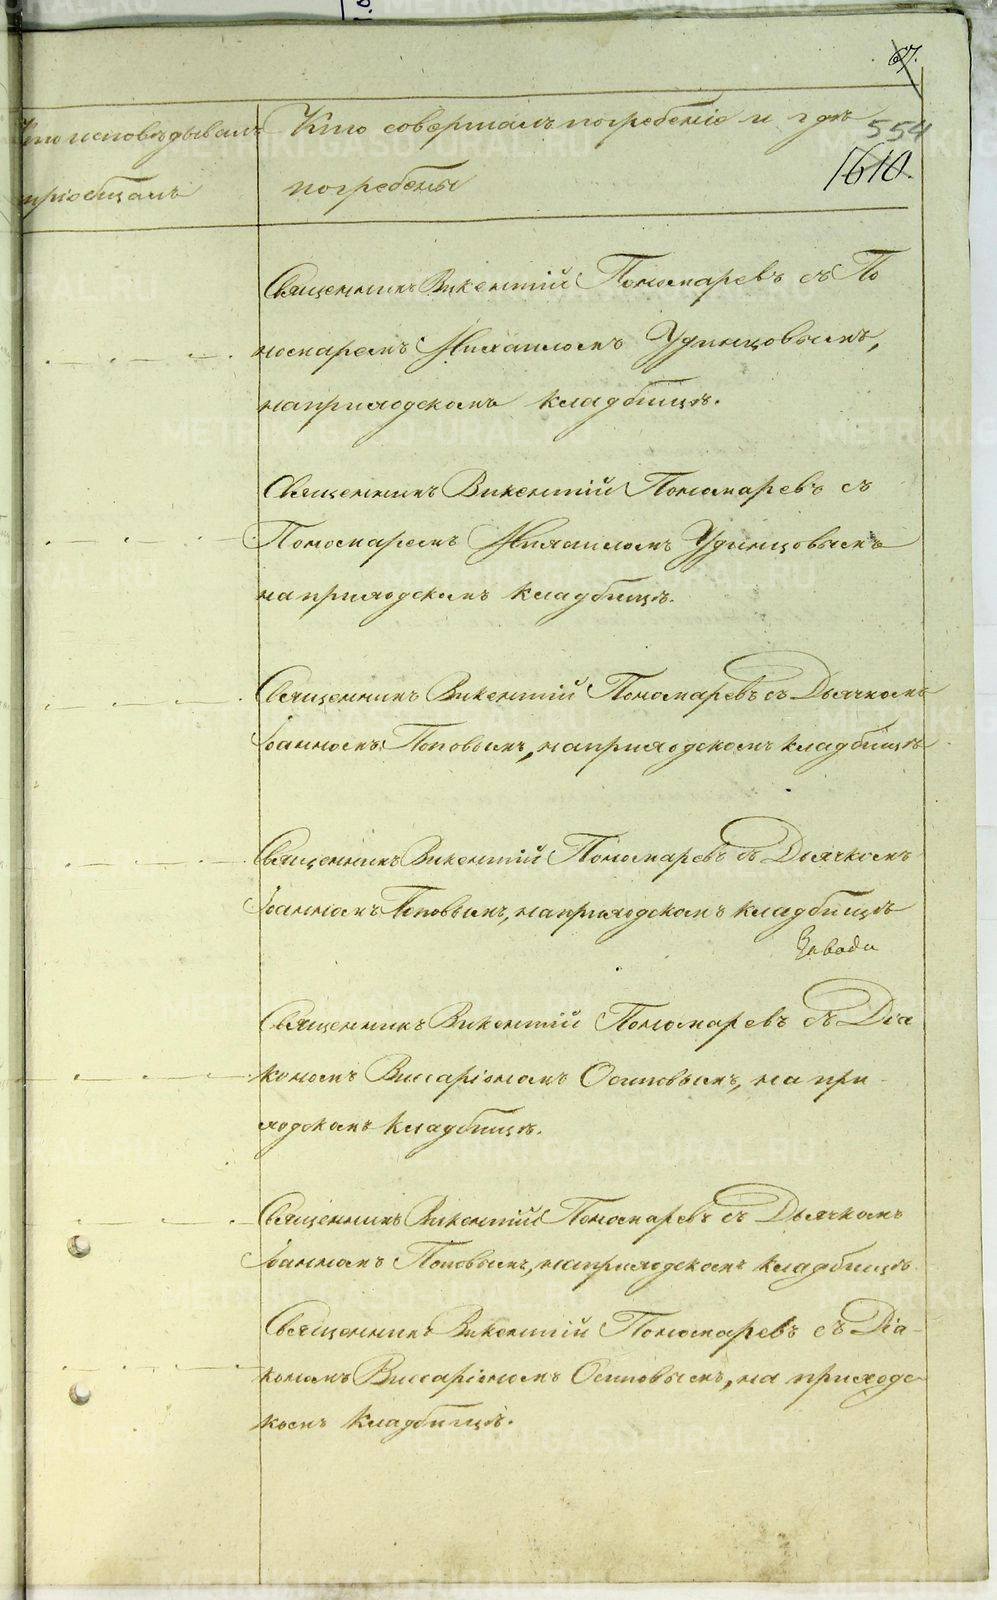 67.
554
1610.
Кто исповѣдывалъ
пріобщалъ
Кто совершалъ погребеніе и гдѣ
погребены
Священникъ Викентій Пономаревъ съ По
номаремъ Михаиломъ Удинцовымъ,
на приходскомъ кладбищѣ.
Священникъ Викентій Пономаревъ съ
Пономаремъ Михаиломъ Удинцовымъ
на приходскомъ кладбищѣ.
Священникъ Викентій Пономаревъ съ Дьячкомъ
Іоанномъ Поповымъ, на приходскомъ кладбищѣ
Священникъ Викентій Пономаревъ съ Дьячкомъ
Іоанномъ Поповымъ, на приходскомъ кладбищѣ
Завода
Священникъ Викентій Пономаревъ съ Діа
кономъ Виссаріономъ Осиповымъ, на при-
ходскомъ кладбищѣ.
Священникъ Викентій Пономаревъ съ Дьячкомъ
Іоанномъ Поповымъ, на приходскомъ кладбищѣ.
Священникъ Викентій Пономаревъ съ Діа-
кономъ Виссаріономъ Осиповымъ, на приходс
комъ кладбищѣ.
METRIKI.GASO-URAL.RU